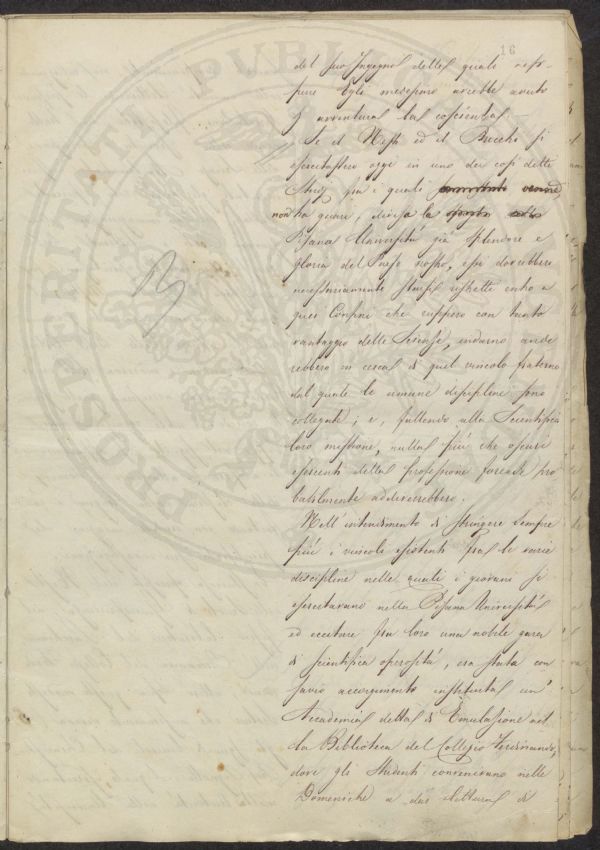 16
del suo Ingegno! delle quali nep-
pure Egli medesimo avrebbe avuto
per avventura la coscienza. —
Se il Nesti ed il Bicchi si
esercitassero oggi in uno dei così detti
Studj fra i quali
non ha guari, divisa la
Pisana Università già splendore e
gloria del Paese nostro, essi dovrebbero
necessariamente starsi ristretti entro a
quei Confini che ruppero con tanto
vantaggio delle Scienze, indarno ande
rebbero in cerca di quel vincolo fraterno
dal quale le umane discipline sono
collegate; e, fallendo alla Scientifica
loro missione, nulla più che oscuri
esercenti della professione forense pro
babilmente addiverrebbero.
Nell'intendimento di stringere sempre
più i vincoli esistenti fra le varie
discipline nelle quali i giovani si
esercitavano nella Pisana Università
ed eccitare fra loro una nobile gara
di scientifica operosità, era stata con
savio accorgimento instituita un'
Accademia detta di Emulazione nel
la Biblioteca del Collegio Ferdinando,
dove gli Studenti convenivano nelle
Domeniche a dar lettura di
PROSPERITATI PUBLICAE